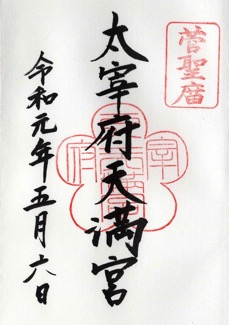 菅聖庿
太宰府天満宮
令和元年五月六日